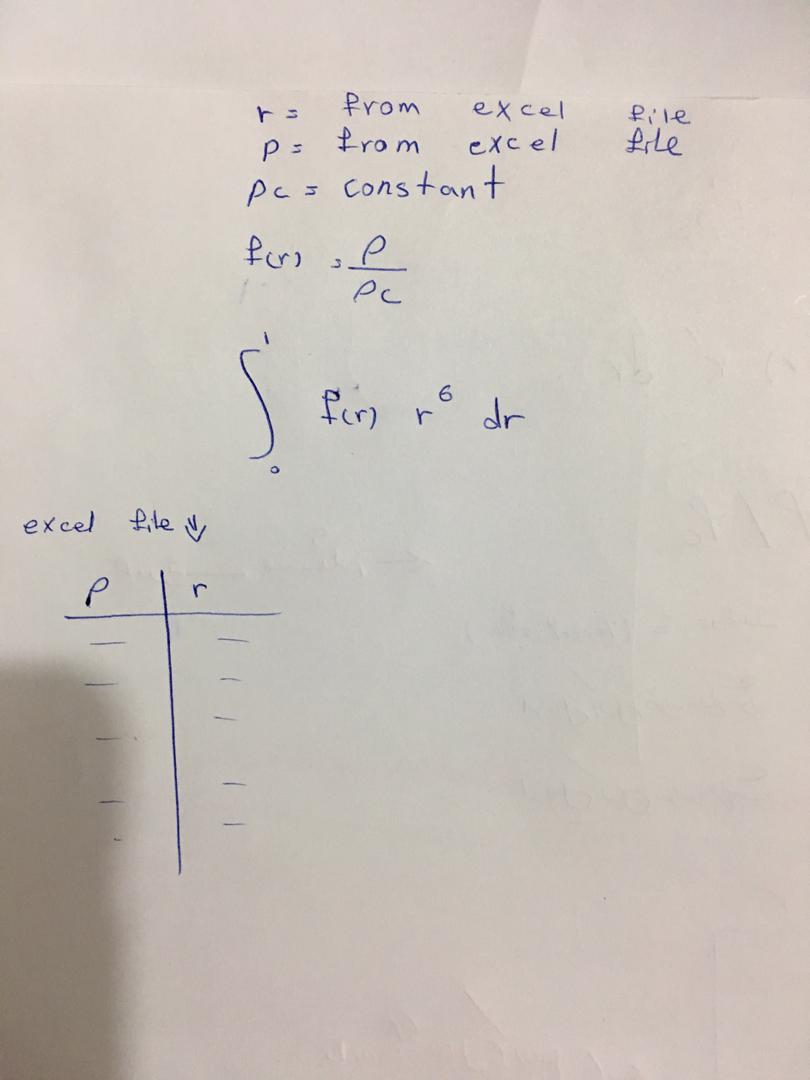 r = from excel file
ρ = from excel file
ρc = constant
f(r) = ρ / ρc
∫₀¹ f(r) r⁶ dr
excel file ⇓
ρ | r